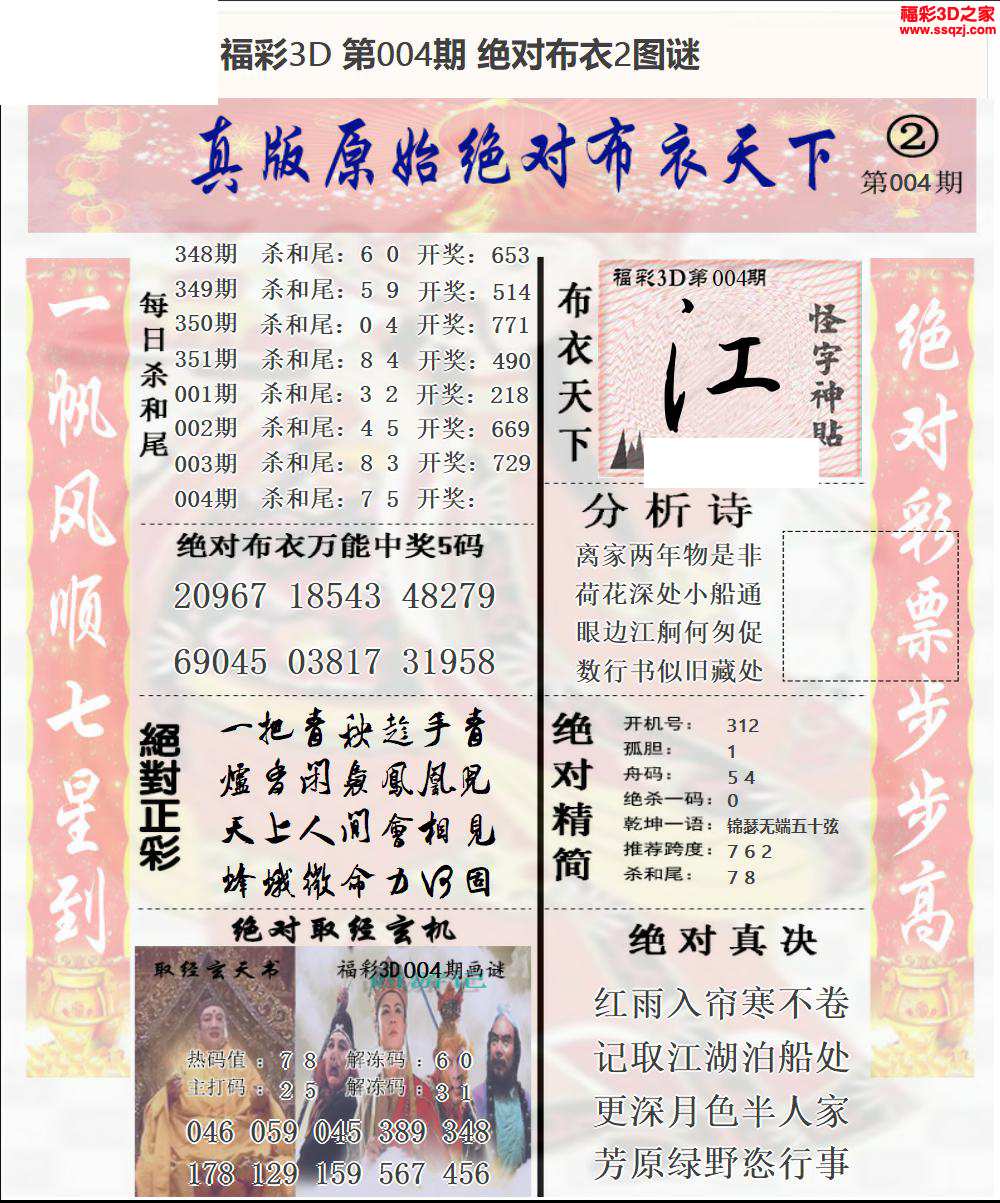 福彩3D之家
www.ssqzj.com
福彩3D 第004期 绝对布衣2图谜
真版原始绝对布衣天下
②
第004期
一帆风顺七星到
每日杀和尾
348期 杀和尾：6 0 开奖：653
349期 杀和尾：5 9 开奖：514
350期 杀和尾：0 4 开奖：771
351期 杀和尾：8 4 开奖：490
001期 杀和尾：3 2 开奖：218
002期 杀和尾：4 5 开奖：669
003期 杀和尾：8 3 开奖：729
004期 杀和尾：7 5 开奖：
绝对布衣万能中奖5码
20967 18543 48279
69045 03817 31958
絕對正彩
一把青秧趁手青
爐香闲裊鳳凰児
天上人间會相見
蜂蛾微命力何固
绝对取经玄机
取经玄天书
福彩3D004期画谜
热码值：7 8 解冻码：6 0
主打码：2 5 解冻码：3 1
046 059 045 389 348
178 129 159 567 456
布衣天下
福彩3D第004期
江
怪字神貼
分析诗
离家两年物是非
荷花深处小船通
眼边江舸何匆促
数行书似旧藏处
绝对精简
开机号：312
孤胆：1
舟码：5 4
绝杀一码：0
乾坤一语：锦瑟无端五十弦
推荐跨度：7 6 2
杀和尾：7 8
绝对真决
红雨入帘寒不卷
记取江湖泊船处
更深月色半人家
芳原绿野恣行事
绝对彩票步步高